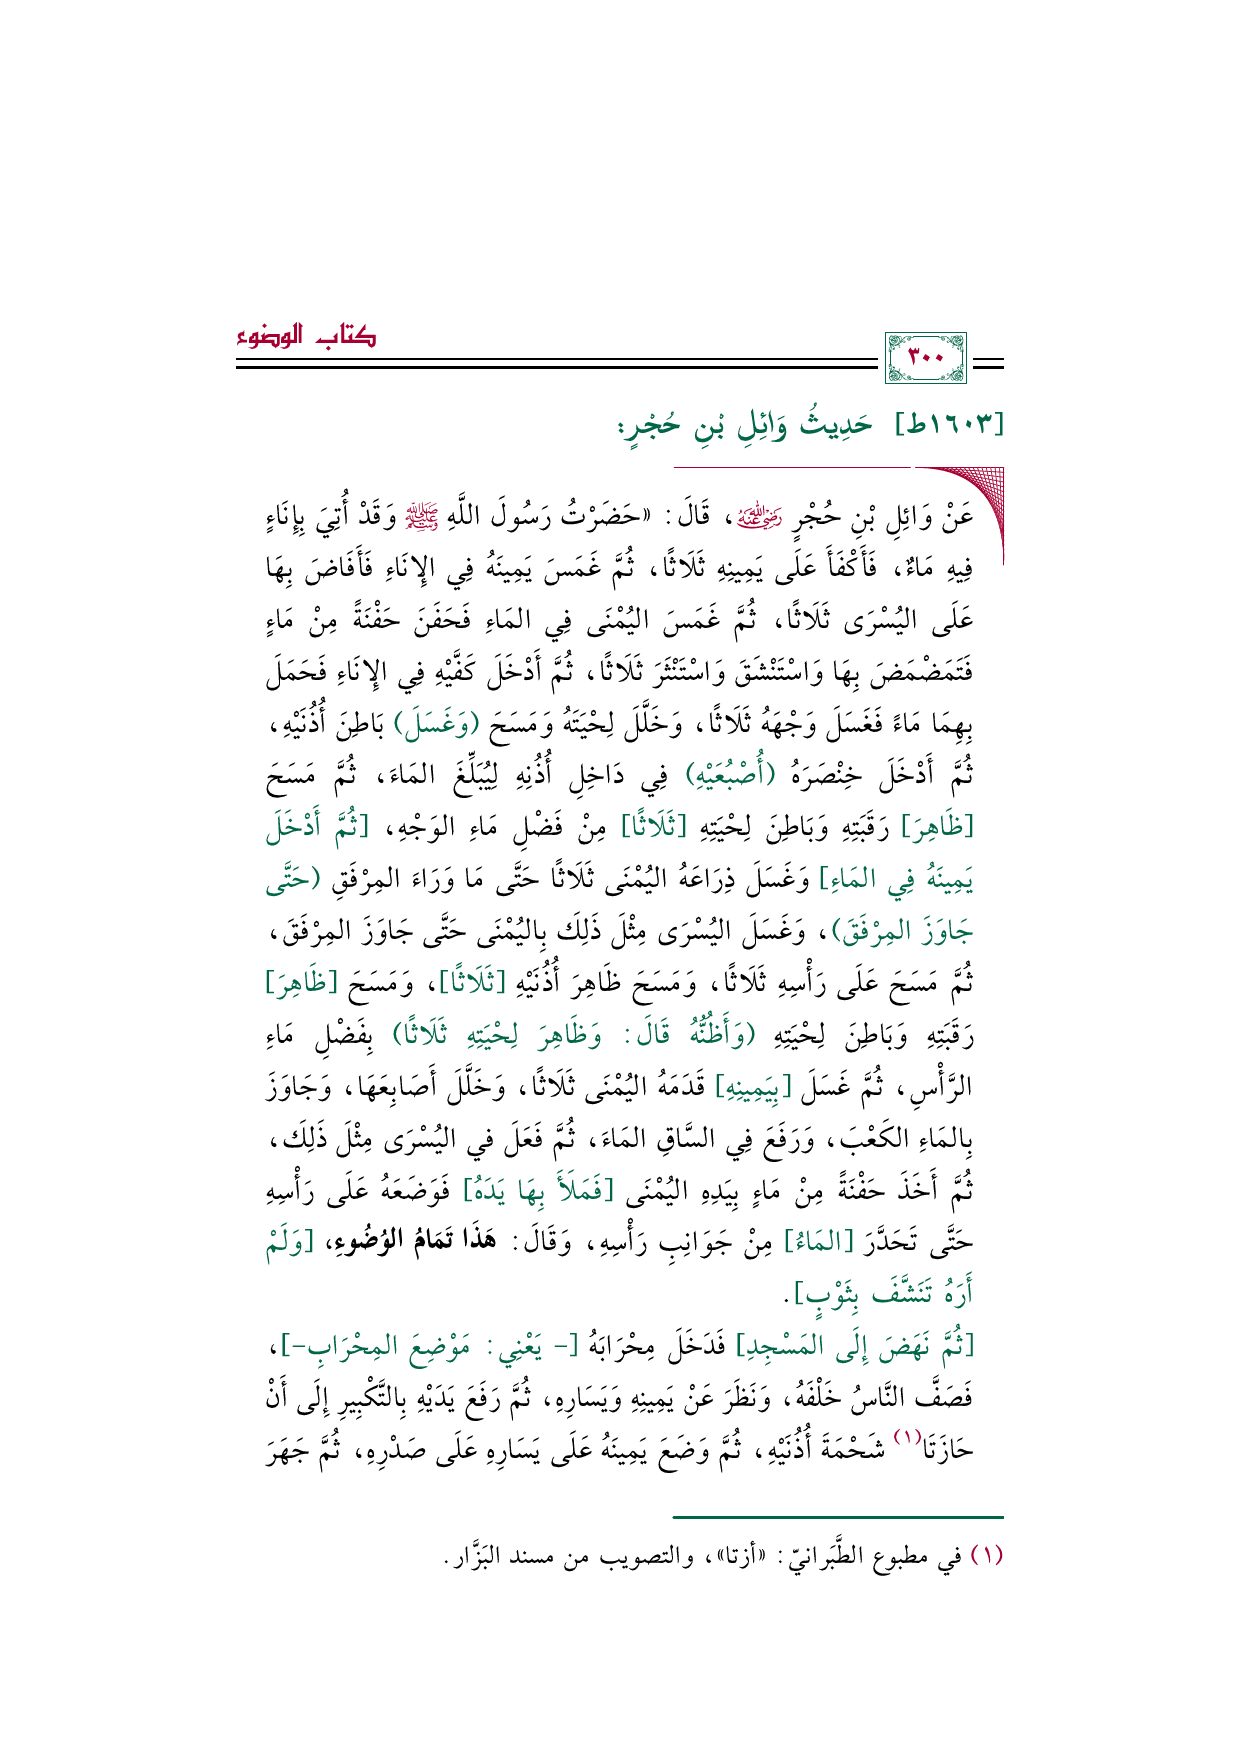 كتاب الوضوء
٣٠٠
[١٦٠٣ط] حَدِيثُ وَائِلِ بْنِ حُجْرٍ:
عَنْ وَائِلِ بْنِ حُجْرٍ رضي الله عنه، قَالَ: «حَضَرْتُ رَسُولَ اللَّهِ ﷺ وَقَدْ أُتِيَ بِإِنَاءٍ
فِيهِ مَاءٌ، فَأَكْفَأَ عَلَى يَمِينِهِ ثَلَاثًا، ثُمَّ غَمَسَ يَمِينَهُ فِي الإِنَاءِ فَأَفَاضَ بِهَا
عَلَى اليُسْرَى ثَلَاثًا، ثُمَّ غَمَسَ اليُمْنَى فِي المَاءِ فَحَفَنَ حَفْنَةً مِنْ مَاءٍ
فَتَمَضْمَضَ بِهَا وَاسْتَنْشَقَ وَاسْتَنْثَرَ ثَلَاثًا، ثُمَّ أَدْخَلَ كَفَّيْهِ فِي الإِنَاءِ فَحَمَلَ
بِهِمَا مَاءً فَغَسَلَ وَجْهَهُ ثَلَاثًا، وَخَلَّلَ لِحْيَتَهُ وَمَسَحَ (وَغَسَلَ) بَاطِنَ أُذُنَيْهِ،
ثُمَّ أَدْخَلَ خِنْصَرَهُ (أُصْبُعَيْهِ) فِي دَاخِلِ أُذُنِهِ لِيُبَلِّغَ المَاءَ، ثُمَّ مَسَحَ
[ظَاهِرَ] رَقَبَتِهِ وَبَاطِنَ لِحْيَتِهِ [ثَلَاثًا] مِنْ فَضْلِ مَاءِ الوَجْهِ، [ثُمَّ أَدْخَلَ
يَمِينَهُ فِي المَاءِ] وَغَسَلَ ذِرَاعَهُ اليُمْنَى ثَلَاثًا حَتَّى مَا وَرَاءَ المِرْفَقِ (حَتَّى
جَاوَزَ المِرْفَقَ)، وَغَسَلَ اليُسْرَى مِثْلَ ذَلِكَ بِاليُمْنَى حَتَّى جَاوَزَ المِرْفَقَ،
ثُمَّ مَسَحَ عَلَى رَأْسِهِ ثَلَاثًا، وَمَسَحَ ظَاهِرَ أُذُنَيْهِ [ثَلَاثًا]، وَمَسَحَ [ظَاهِرَ]
رَقَبَتِهِ وَبَاطِنَ لِحْيَتِهِ (وَأَظُنُّهُ قَالَ: وَظَاهِرَ لِحْيَتِهِ ثَلَاثًا) بِفَضْلِ مَاءِ
الرَّأْسِ، ثُمَّ غَسَلَ [بِيَمِينِهِ] قَدَمَهُ اليُمْنَى ثَلَاثًا، وَخَلَّلَ أَصَابِعَهَا، وَجَاوَزَ
بِالمَاءِ الكَعْبَ، وَرَفَعَ فِي السَّاقِ المَاءَ، ثُمَّ فَعَلَ في اليُسْرَى مِثْلَ ذَلِكَ،
ثُمَّ أَخَذَ حَفْنَةً مِنْ مَاءٍ بِيَدِهِ اليُمْنَى [فَمَلَأَ بِهَا يَدَهُ] فَوَضَعَهُ عَلَى رَأْسِهِ
حَتَّى تَحَدَّرَ [المَاءُ] مِنْ جَوَانِبِ رَأْسِهِ، وَقَالَ: هَذَا تَمَامُ الوُضُوءِ، [وَلَمْ
أَرَهُ تَنَشَّفَ بِثَوْبٍ].
[ثُمَّ نَهَضَ إِلَى المَسْجِدِ] فَدَخَلَ مِحْرَابَهُ [- يَعْنِي: مَوْضِعَ المِحْرَابِ-]،
فَصَفَّ النَّاسُ خَلْفَهُ، وَنَظَرَ عَنْ يَمِينِهِ وَيَسَارِهِ، ثُمَّ رَفَعَ يَدَيْهِ بِالتَّكْبِيرِ إِلَى أَنْ
حَازَتَا(١) شَحْمَةَ أُذُنَيْهِ، ثُمَّ وَضَعَ يَمِينَهُ عَلَى يَسَارِهِ عَلَى صَدْرِهِ، ثُمَّ جَهَرَ
(١) في مطبوع الطَّبَرانيّ: «أزتا»، والتصويب من مسند البَزَّار.